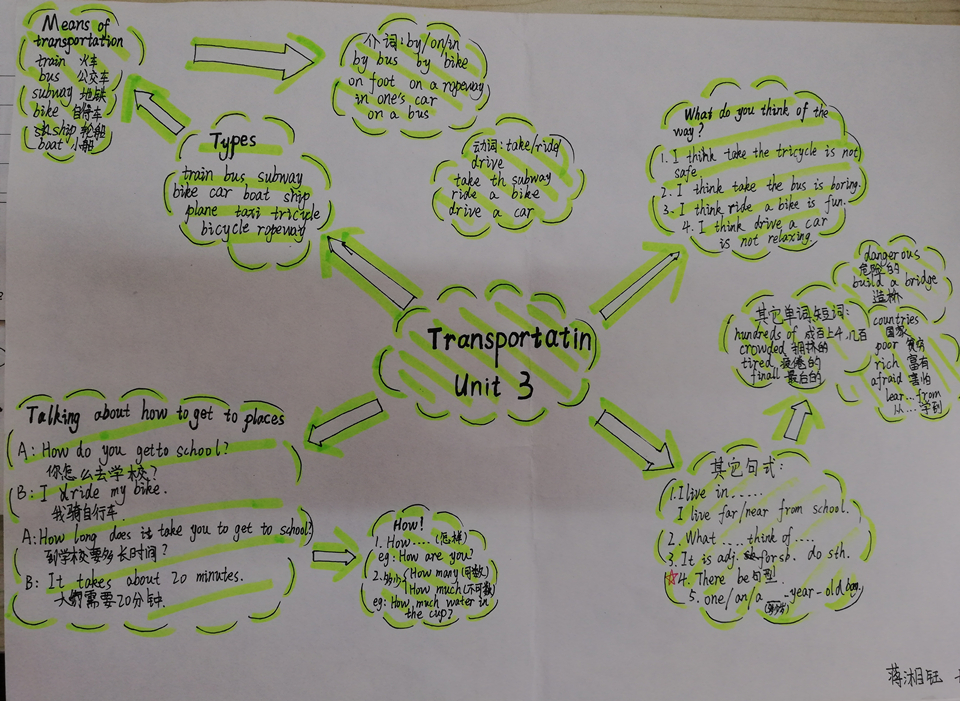 Means of
transportation
train 火车
bus 公交车
subway 地铁
bike 自行车
ship 轮船
boat 小船
介词: by/on/in
by bus by bike
on foot on a ropeway
in one's car
on a bus
Types
train bus subway
bike car boat ship
plane taxi tricycle
bicycle ropeway
动词: take/ride/
drive
take th subway
ride a bike
drive a car
What do you think of the
way?
1. I think take the tricycle is not
safe
2. I think take the bus is boring.
3. I think ride a bike is fun.
4. I think drive a car
is not relaxing.
Transportatin
Unit 3
dangerous
危险的
build a bridge
造桥
countries
国家
poor 贫穷
rich 富有
afraid 害怕
lear...from
从...学到
其它单词短词:
hundreds of 成百上千,几百
crowded 拥挤的
tired 疲倦的
finall 最后的
Talking about how to get to places
A: How do you getto school?
你怎么去学校?
B: I ride my bike.
我骑自行车
A: How long does it take you to get to school?
到学校要多长时间?
B: It takes about 20 minutes.
大约需要20分钟.
How!
1. How....(怎样)
eg: How are you?
2. 多少 How many (可数)
How much (不可数)
eg: How much water in
the cup?
其它句式:
1. I live in......
I live far/near from school.
2. What .... think of....
3. It is adj. forsb. do sth.
☆4. There be句型
5. one/an/a __-year-old boy.
蒋湘钰